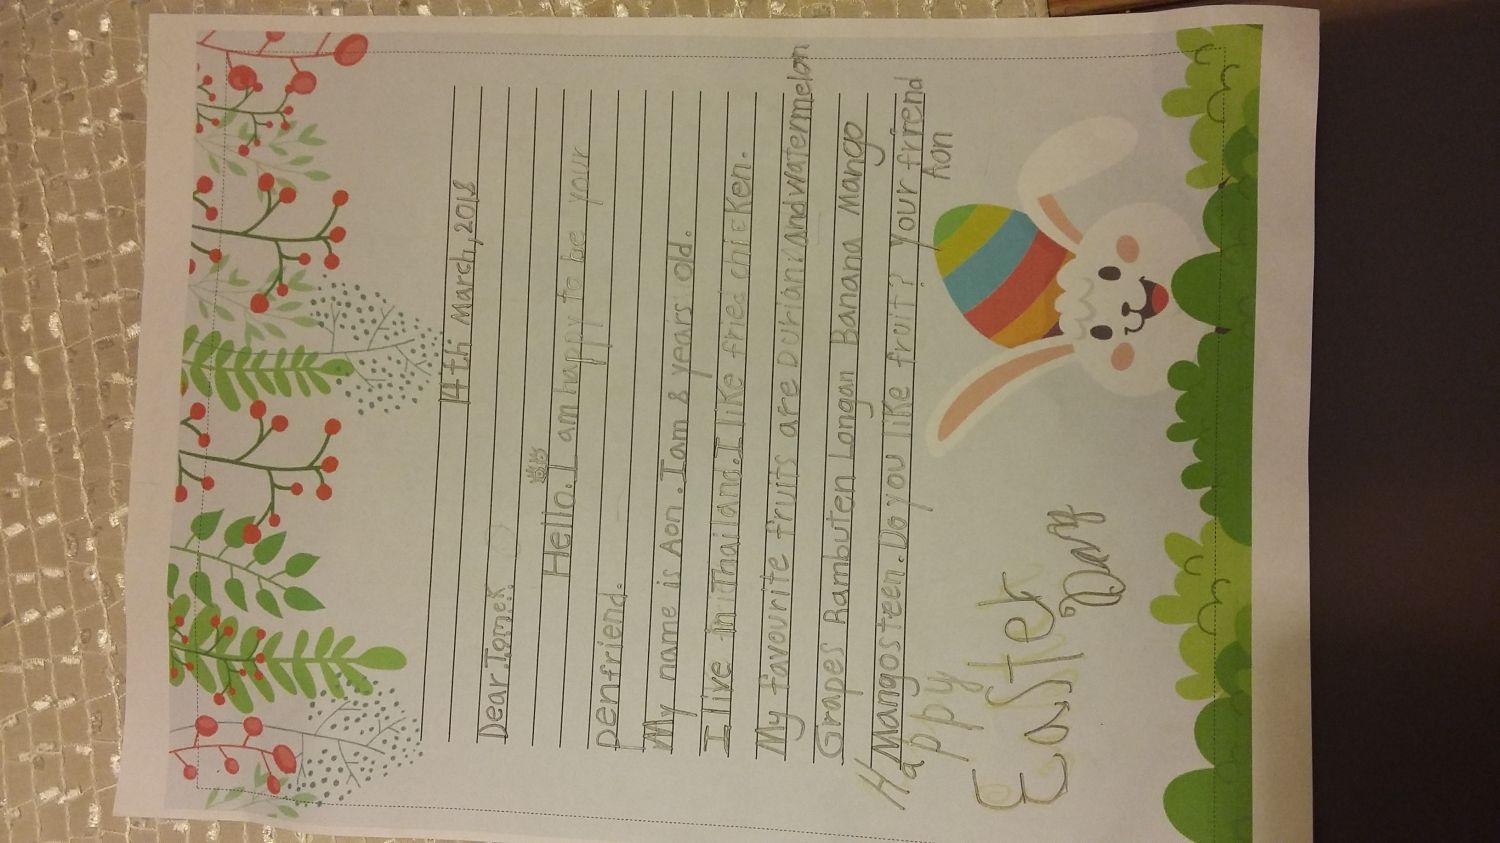 14th March, 2018
Dear Tomek
Hello. I am happy to be your
penfriend.
My name is Aon. I am 8 years old.
I live in Thailand. I like fried chicken.
My favourite fruits are Durian and watermelon
Grapes Rambuten Longan Banana Mango
Mangosteen. Do you like fruit? Your frirend
Aon
Happy
Easter
Day